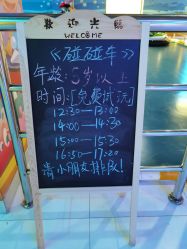 歡迎光臨
WELCOME
《碰碰车》
年龄:5岁以上
时间:[免费试玩]
12:30—13:00
14:00—14:30
15:00—15:30
16:50—17:20
请小朋友排队!